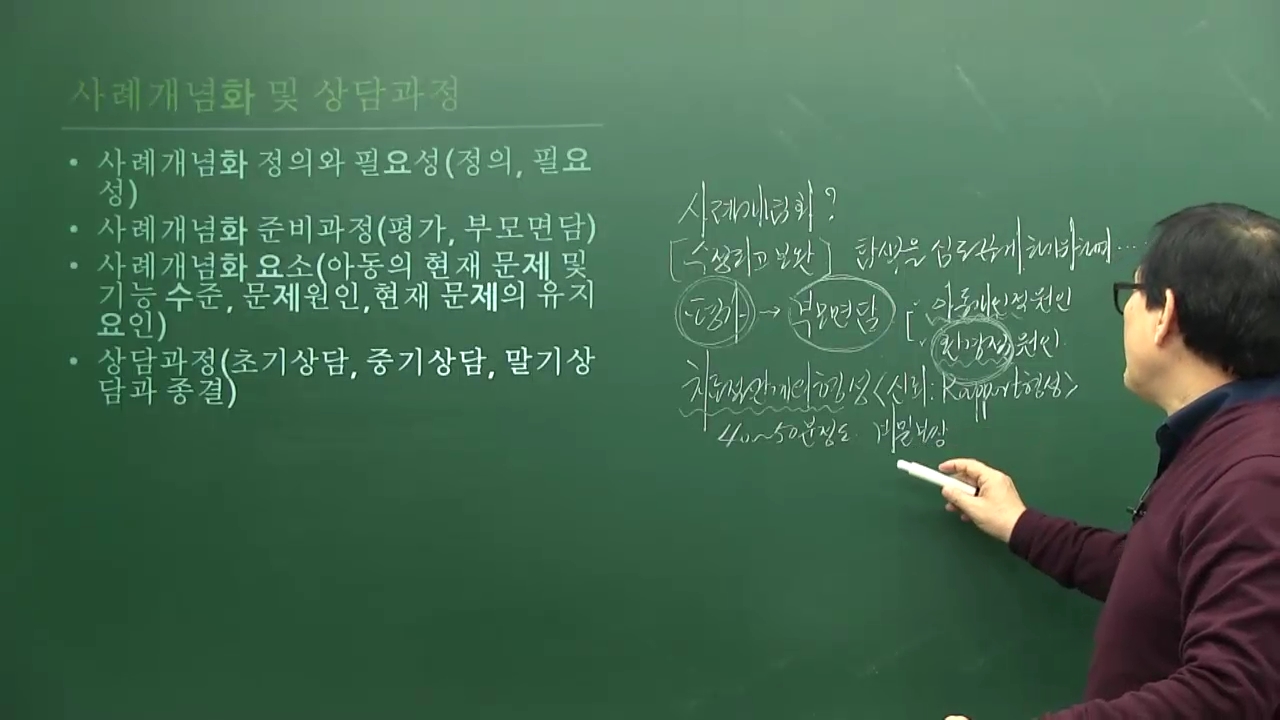 사례개념화 및 상담과정
• 사례개념화 정의와 필요성(정의, 필요
성)
• 사례개념화 준비과정(평가, 부모면담)
• 사례개념화 요소(아동의 현재 문제 및
기능 수준, 문제원인,현재 문제의 유지
요인)
• 상담과정(초기상담, 중기상담, 말기상
담과 종결)
사례개념화?
[수정하고 보완] 탐색을 심도있게 해가하며····
평가 → 부모면담
아동개인적 원인
환경적 원인
치료적관계의 형성<신뢰: Rapport형성>
40~50분정도 비밀보장